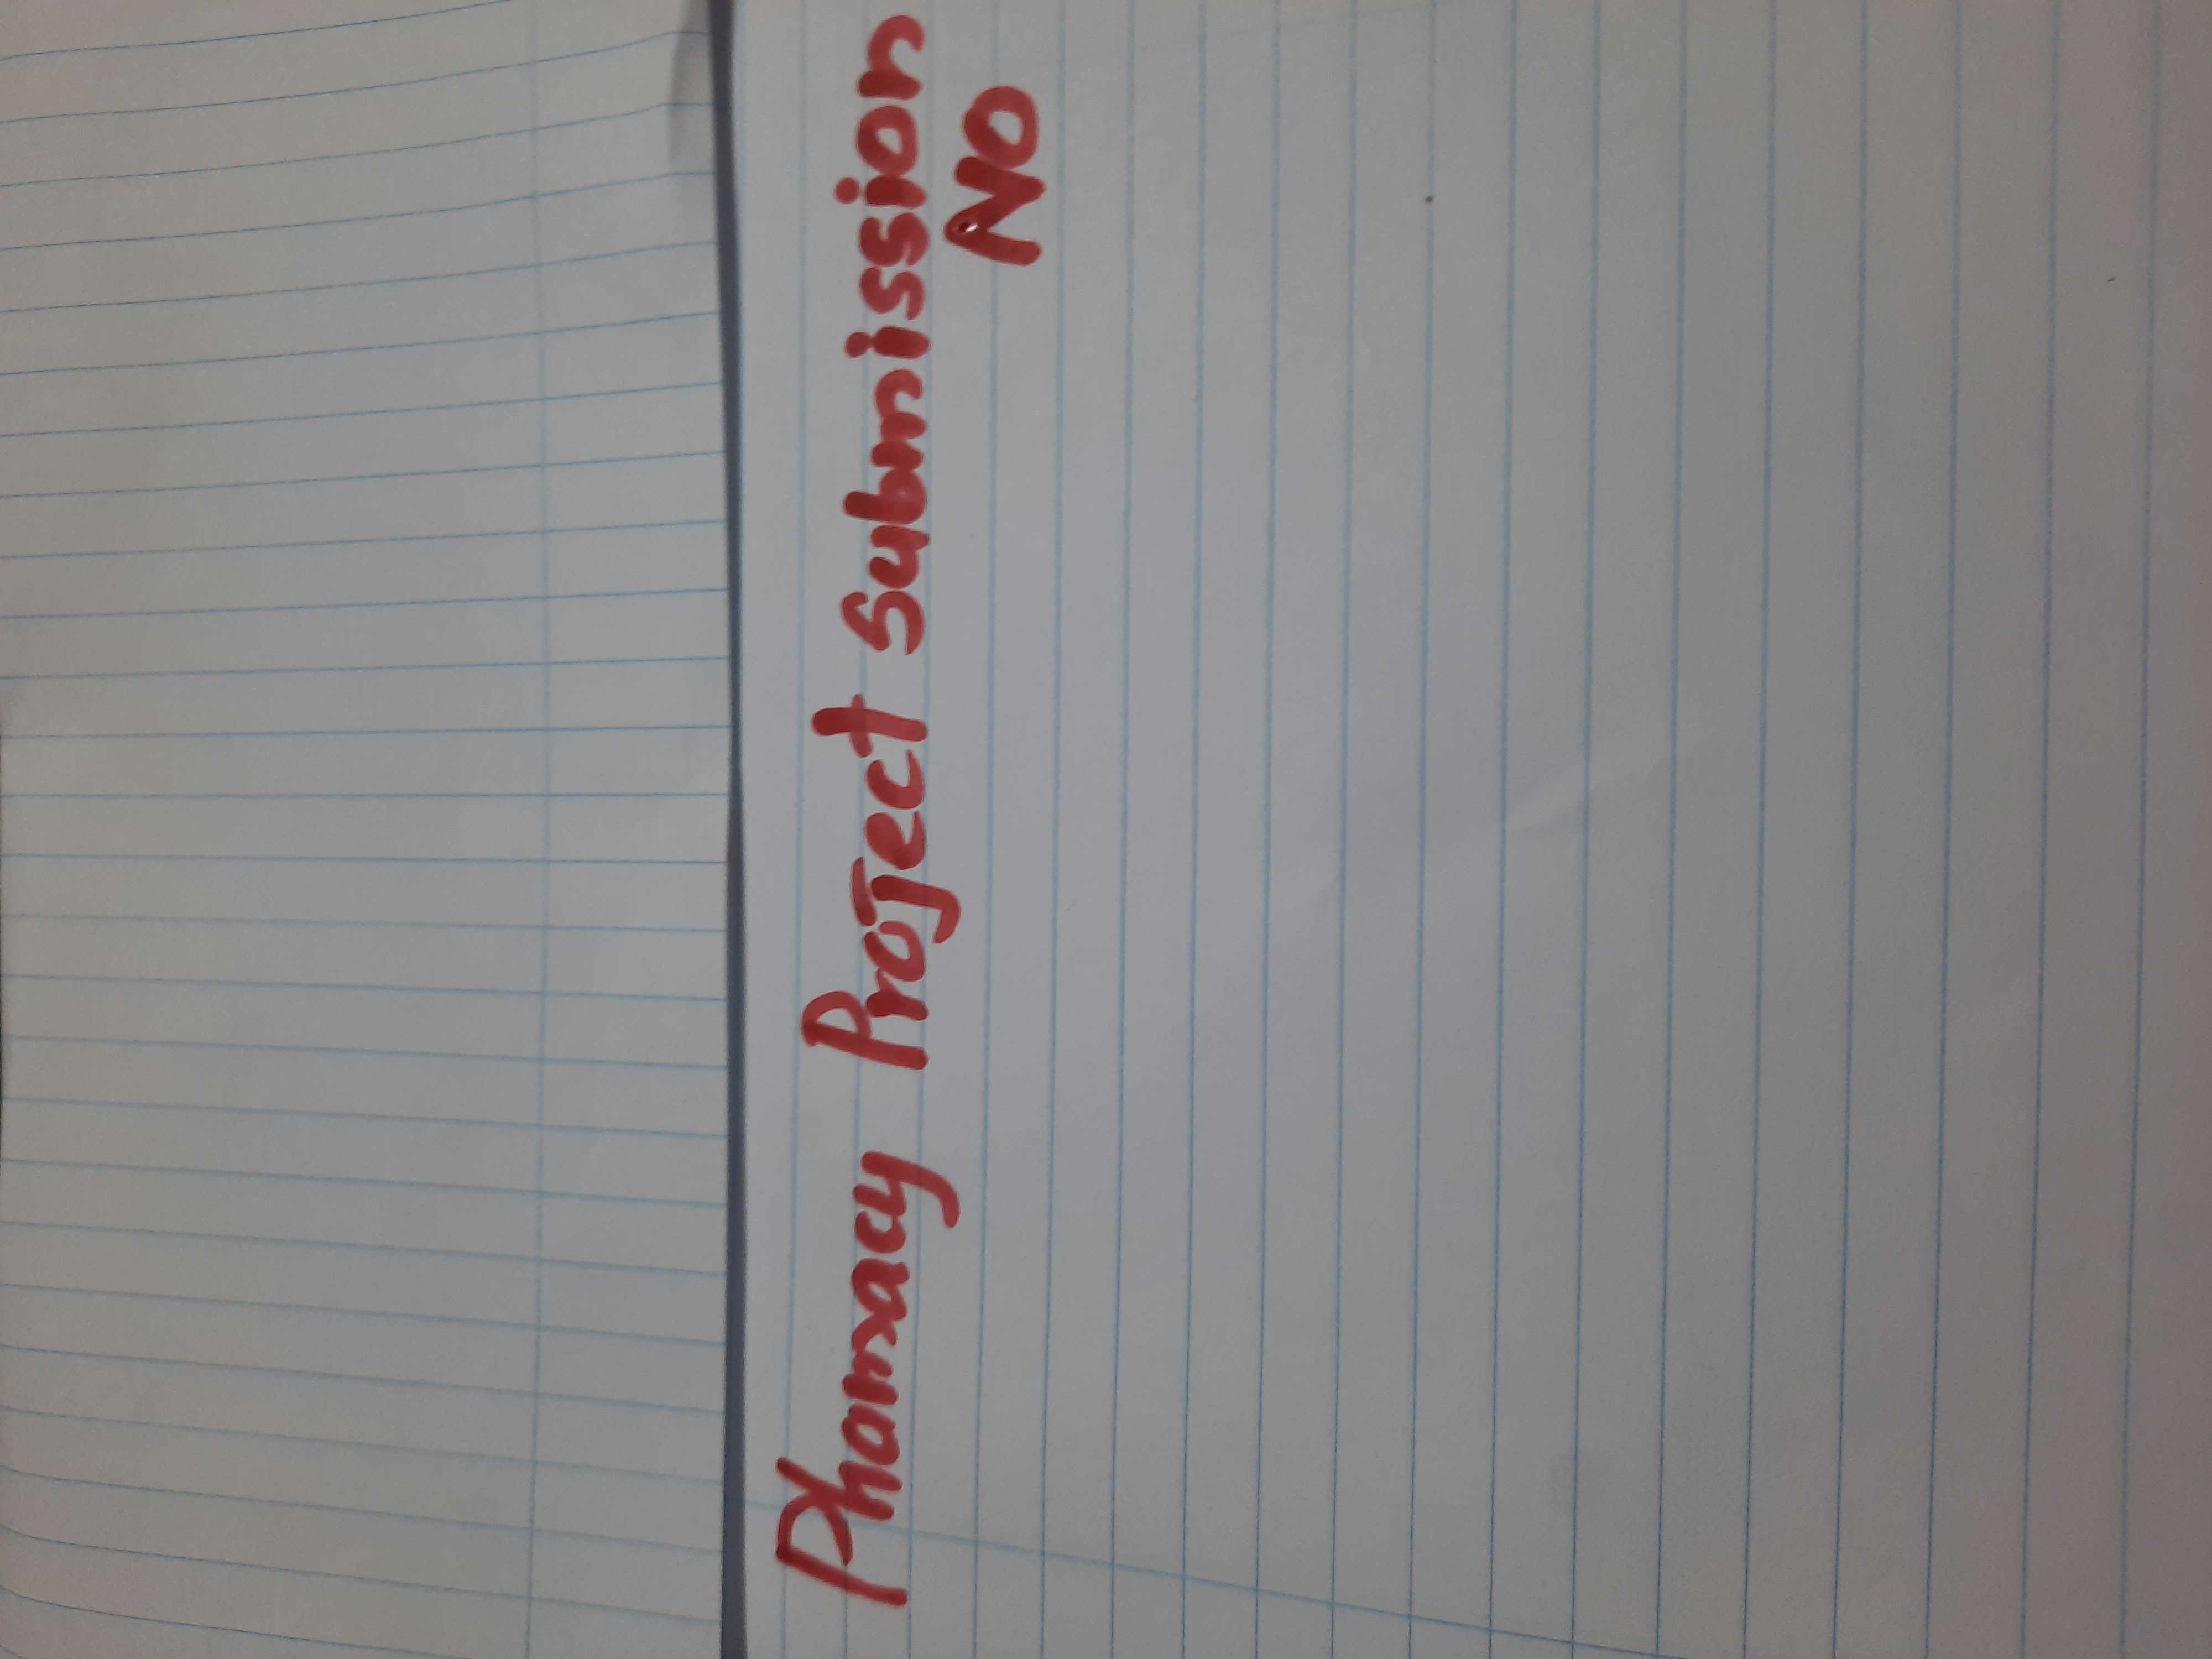 Phamacy Project Submission
No